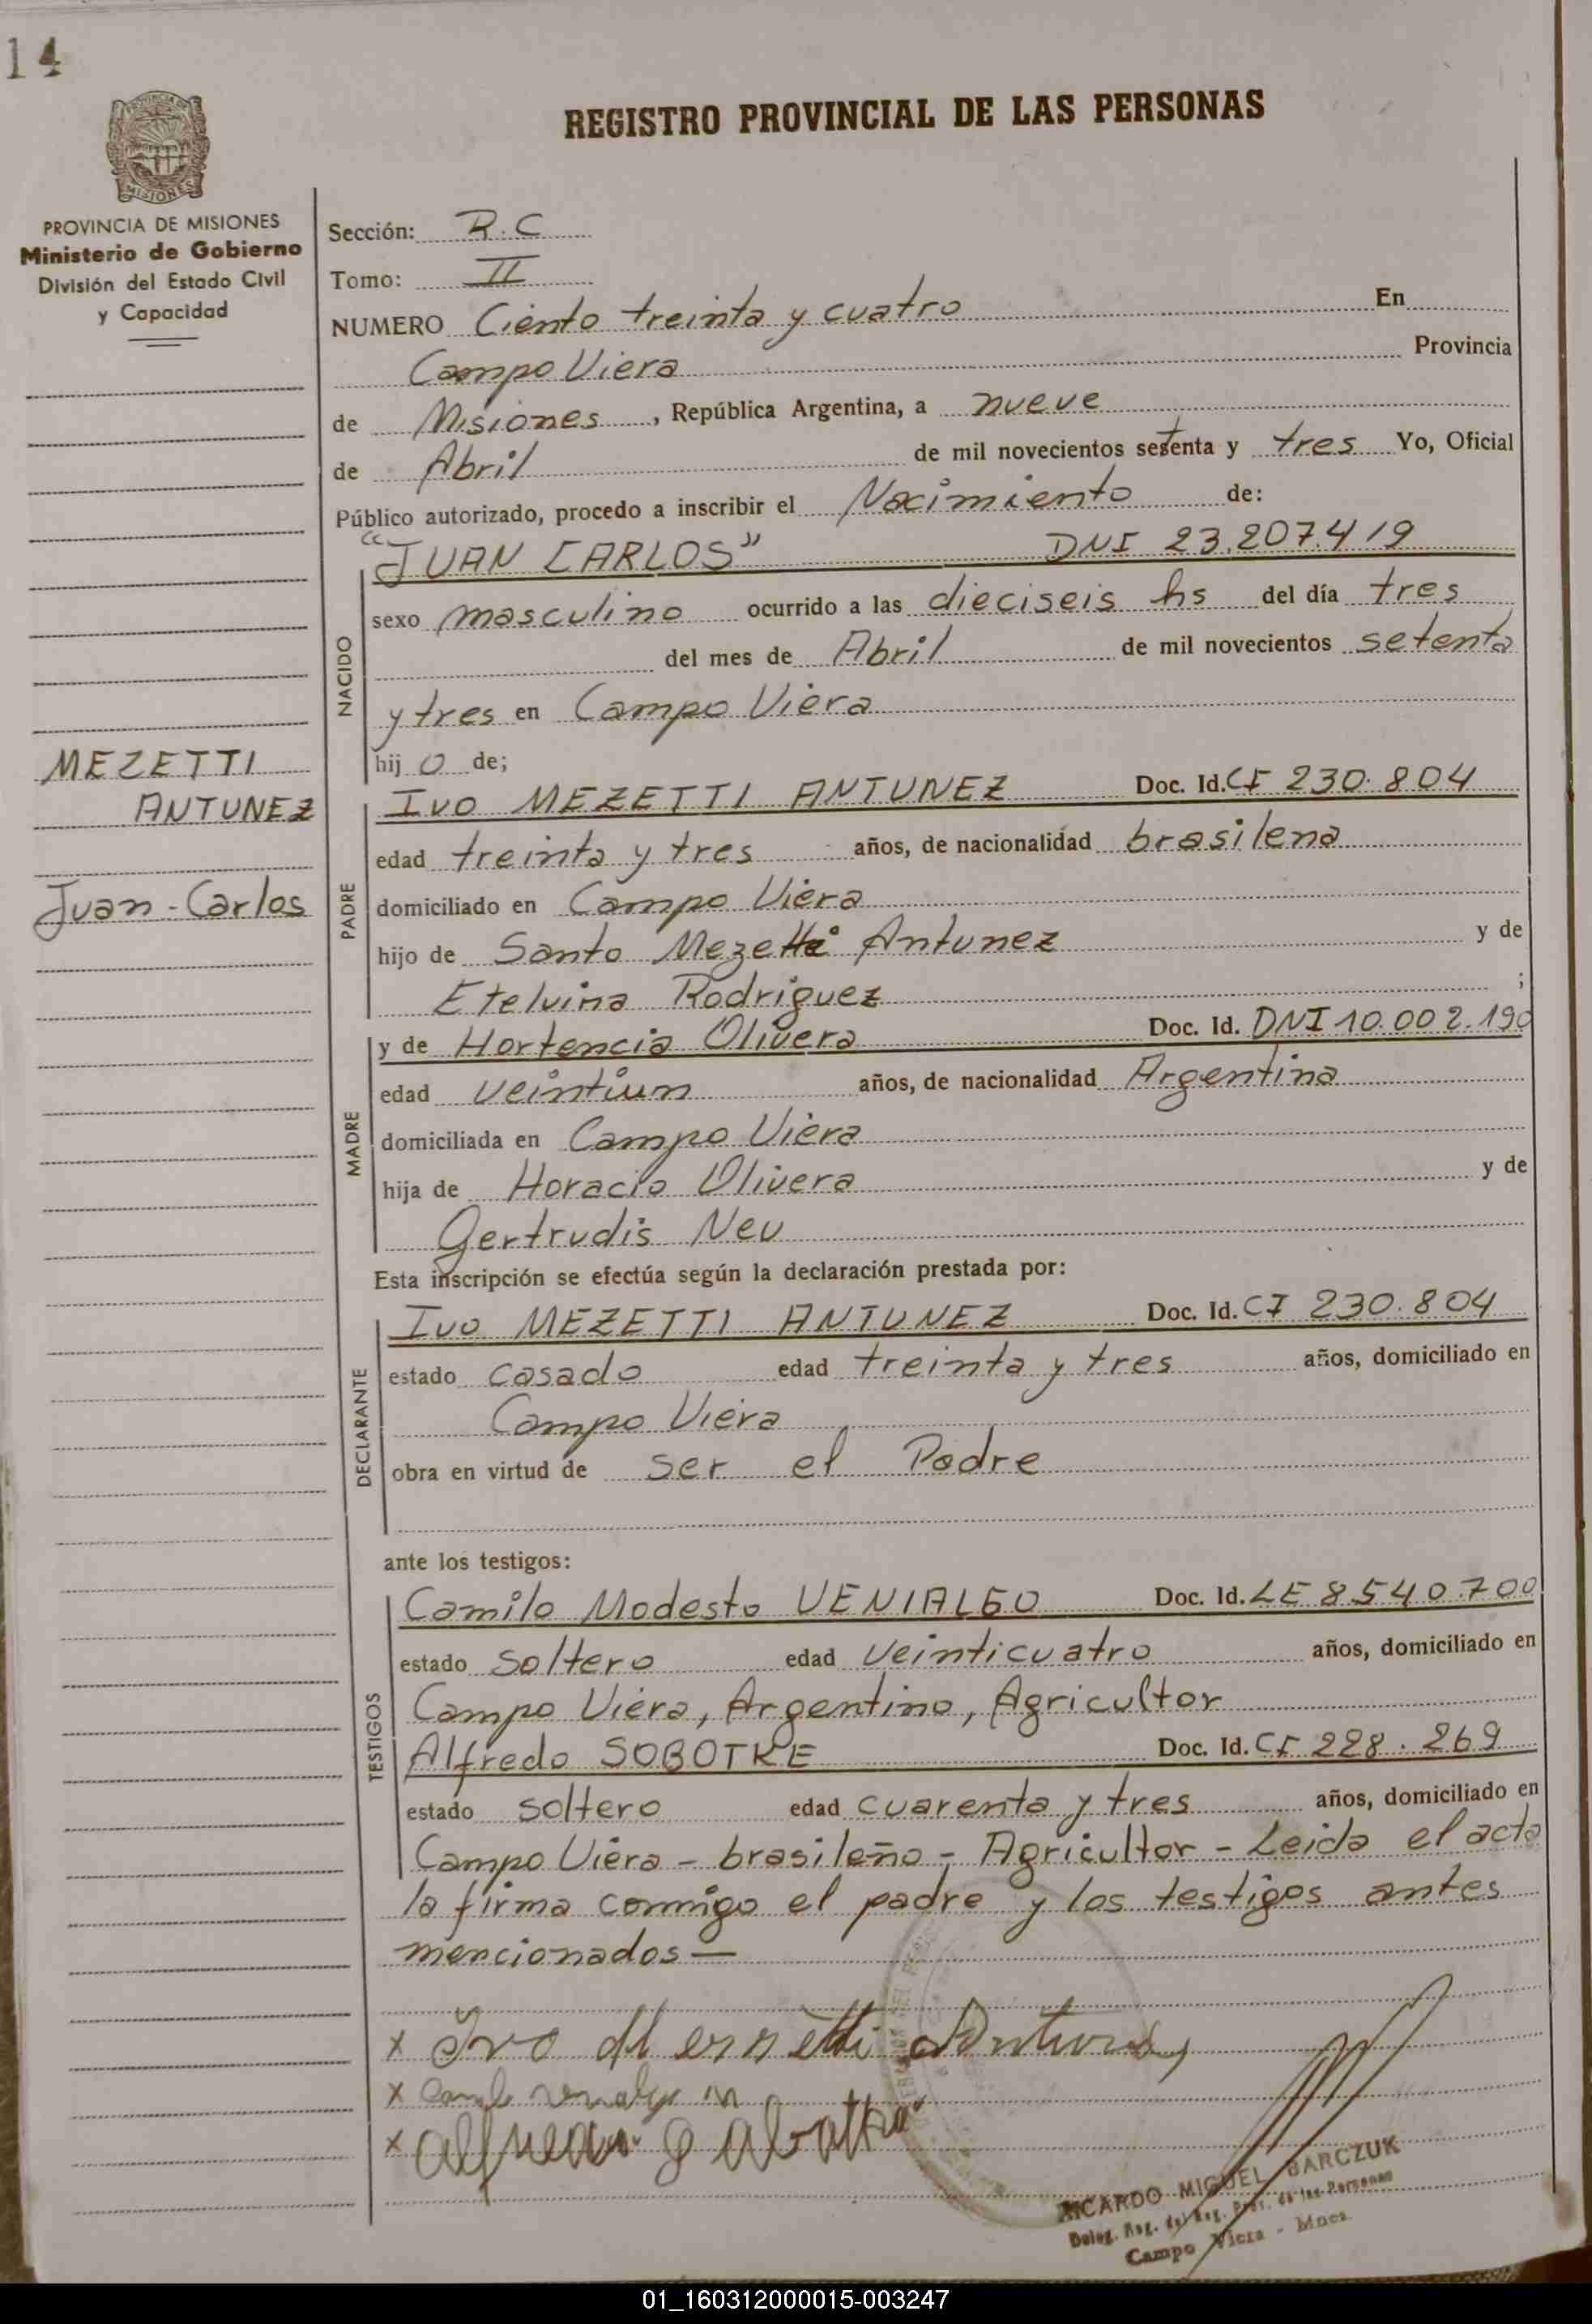 14
REGISTRO PROVINCIAL DE LAS PERSONAS
MISIONES
PROVINCIA DE MISIONES
Ministerio de Gobierno
División del Estado Civil
y Capacidad
MEZETTI
ANTUNEZ
Juan - Carlos
Sección: R.C
Tomo: II
NUMERO Ciento treinta y cuatro En
Campo Viera Provincia
de Misiones, República Argentina, a nueve
de Abril de mil novecientos setenta y tres Yo, Oficial
Público autorizado, procedo a inscribir el Nacimiento de:
NACIDO
"JUAN CARLOS" DNI 23.207.419
sexo masculino ocurrido a las dieciseis hs del día tres
del mes de Abril de mil novecientos setenta
y tres en Campo Viera
hij o de;
PADRE
Ivo MEZETTI ANTUNEZ Doc. Id. CI 230.804
edad treinta y tres años, de nacionalidad brasilena
domiciliado en Campo Viera
hijo de Santo Mezetti Antunez y de
Etelvina Rodriguez ;
MADRE
y de Hortencia Olivera Doc. Id. DNI 10.002.190
edad veintiun años, de nacionalidad Argentina
domiciliada en Campo Viera
hija de Horacio Olivera y de
Gertrudis Neu
Esta inscripción se efectúa según la declaración prestada por:
DECLARANTE
Ivo MEZETTI ANTUNEZ Doc. Id. CI 230.804
estado casado edad treinta y tres años, domiciliado en
Campo Viera
obra en virtud de ser el Padre
ante los testigos:
TESTIGOS
Camilo Modesto VENIALGO Doc. Id. LE 8540.700
estado soltero edad veinticuatro años, domiciliado en
Campo Viera, Argentino, Agricultor
Alfredo SOBOTKE Doc. Id. CI 228.269
estado soltero edad cuarenta y tres años, domiciliado en
Campo Viera - brasileño - Agricultor - Leida el acta
la firma conmigo el padre y los testigos antes
mencionados —
x Ivo
x
x
RICARDO MIGUEL BARCZUK
Deleg. Reg. del Reg. Prov. de las Personas
Campo Viera - Mnes.
01_160312000015-003247